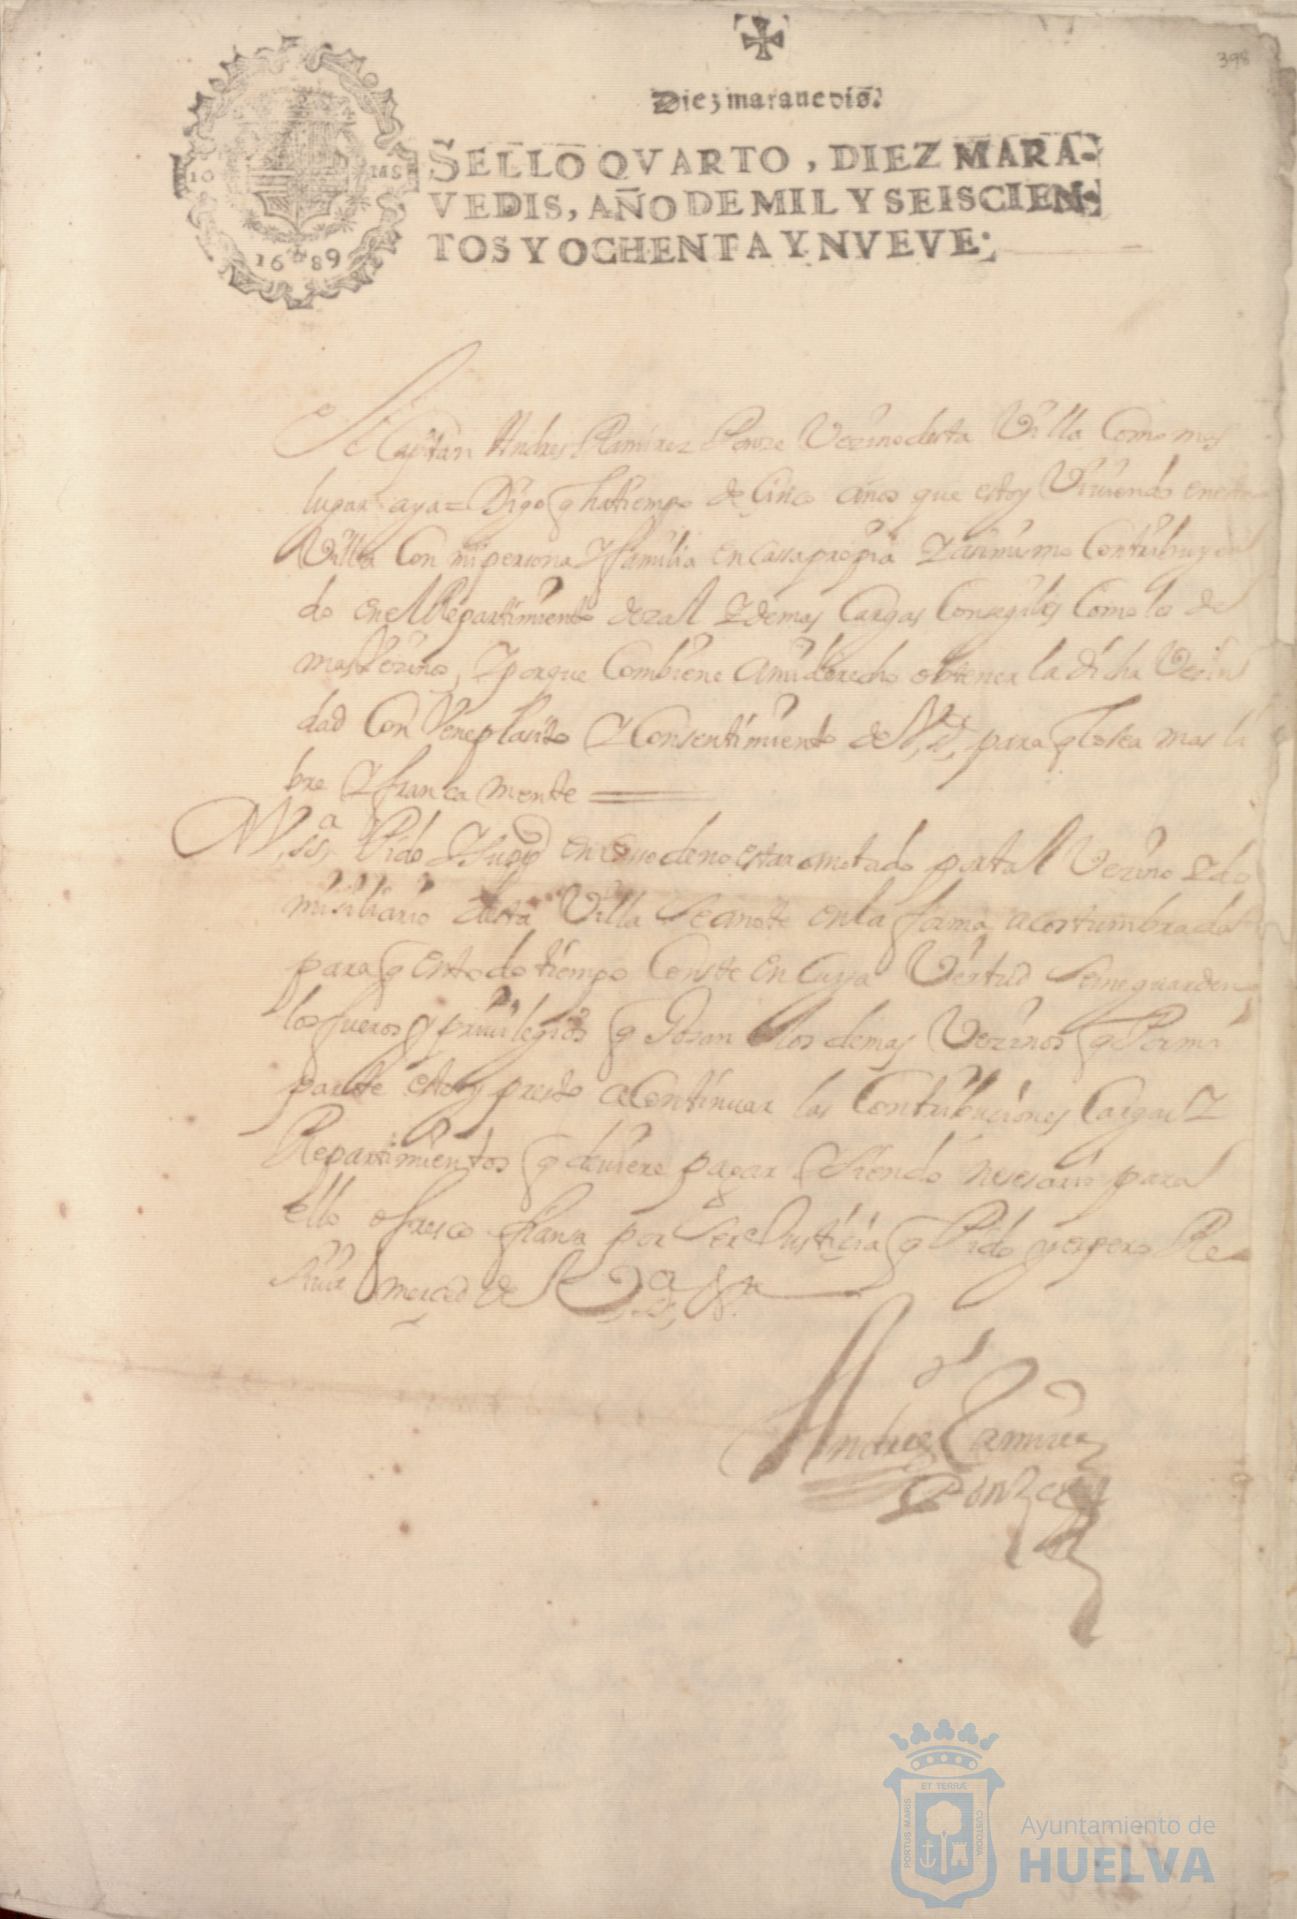 398
Diez maravedis.
SELLO QVARTO, DIEZ MARA-
VEDIS, AÑO DE MIL Y SEISCIEN-
TOS Y OCHENTA Y NVEVE.
10 MS
1689
El Capitan Andres Ramirez Ponze Vezino desta Villa Como mas
lugar aya = Digo q ha tiempo de Cinco años que estoy Viviendo en esta
Villa Con mi persona Y familia en cassa propia Y asimismo Contribuyen
do en el Repartimiento de Y demas Cargas Como los de
mas Vezinos, Y porque Combiene a mi derecho obtener la dicha Vezin
dad Con Veneplasito Y Consentimiento de para q lo sea mas li
bre Y francamente
Pido Y en de no estar anotado por tal Vezino Y do
misiliario desta Villa Se anote en la forma acostumbrada
para q en todo tiempo Conste en Cuya Vertud Se me guarden
los fueros y privilegios q Gosan los demas Vezinos q Por mi
parte estoy presto a Continuar las Contribuciones Cargas Y
Repartimientos q deviere pagar Y Siendo nesesario para
ello ofresco fianza por Ser Justicia q Pido y espero Re
sivir merced de
Andres Ramirez
Ponze
ET TERRÆ
PORTUS MARIS
CUSTODIA
Ayuntamiento de
HUELVA